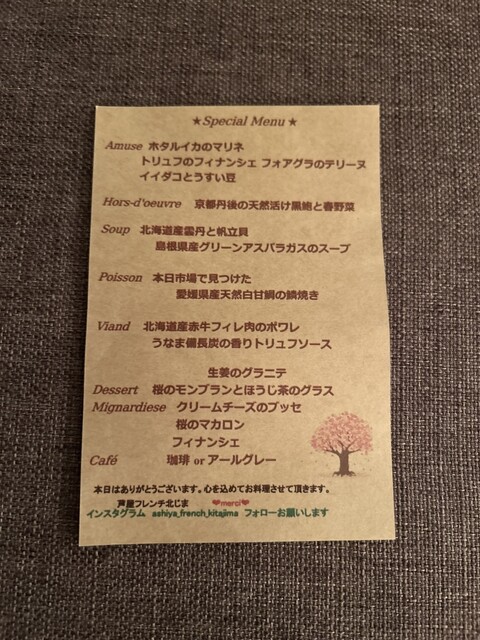 ★Special Menu★
Amuse ホタルイカのマリネ
トリュフのフィナンシェ フォアグラのテリーヌ
イイダコとうすい豆
Hors-d'oeuvre 京都丹後の天然活け黒鮑と春野菜
Soup 北海道産雲丹と帆立貝
島根県産グリーンアスパラガスのスープ
Poisson 本日市場で見つけた
愛媛県産天然白甘鯛の鱗焼き
Viand 北海道産赤牛フィレ肉のポワレ
うなま備長炭の香りトリュフソース
生姜のグラニテ
Dessert 桜のモンブランとほうじ茶のグラス
Mignardiese クリームチーズのブッセ
桜のマカロン
フィナンシェ
Café 珈琲 or アールグレー
本日はありがとうございます。心を込めてお料理させて頂きます。
芦屋フレンチ北じま ❤merci❤
インスタグラム ashiya_french_kitajima フォローお願いします